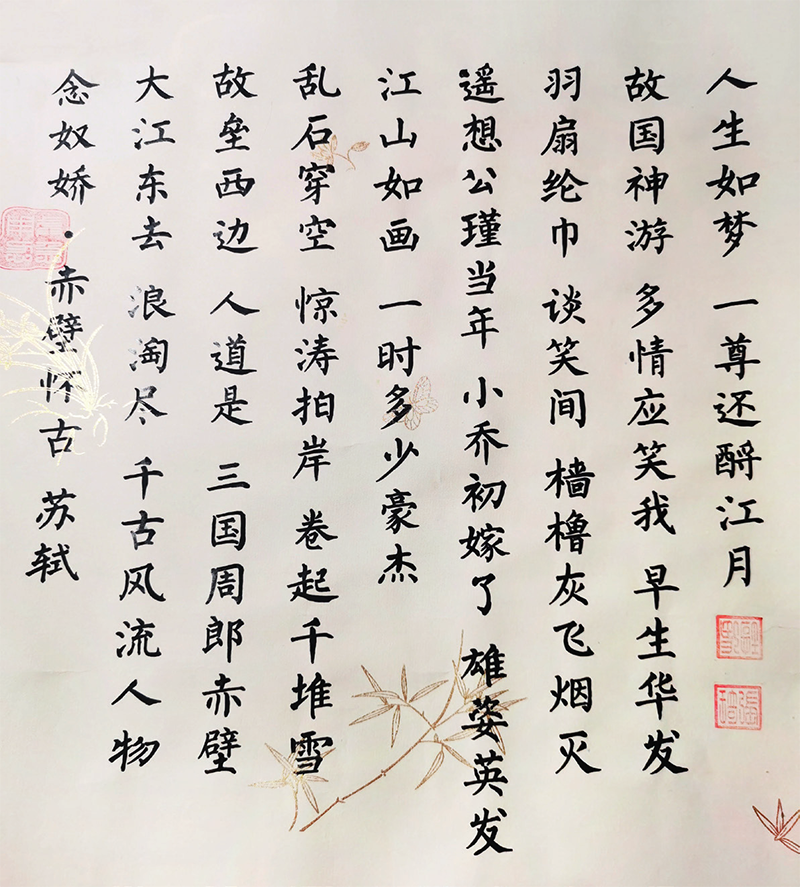 念奴娇·赤壁怀古 苏轼
大江东去 浪淘尽 千古风流人物
故垒西边 人道是 三国周郎赤壁
乱石穿空 惊涛拍岸 卷起千堆雪
江山如画 一时多少豪杰
遥想公瑾当年 小乔初嫁了 雄姿英发
羽扇纶巾 谈笑间 樯橹灰飞烟灭
故国神游 多情应笑我 早生华发
人生如梦 一尊还酹江月